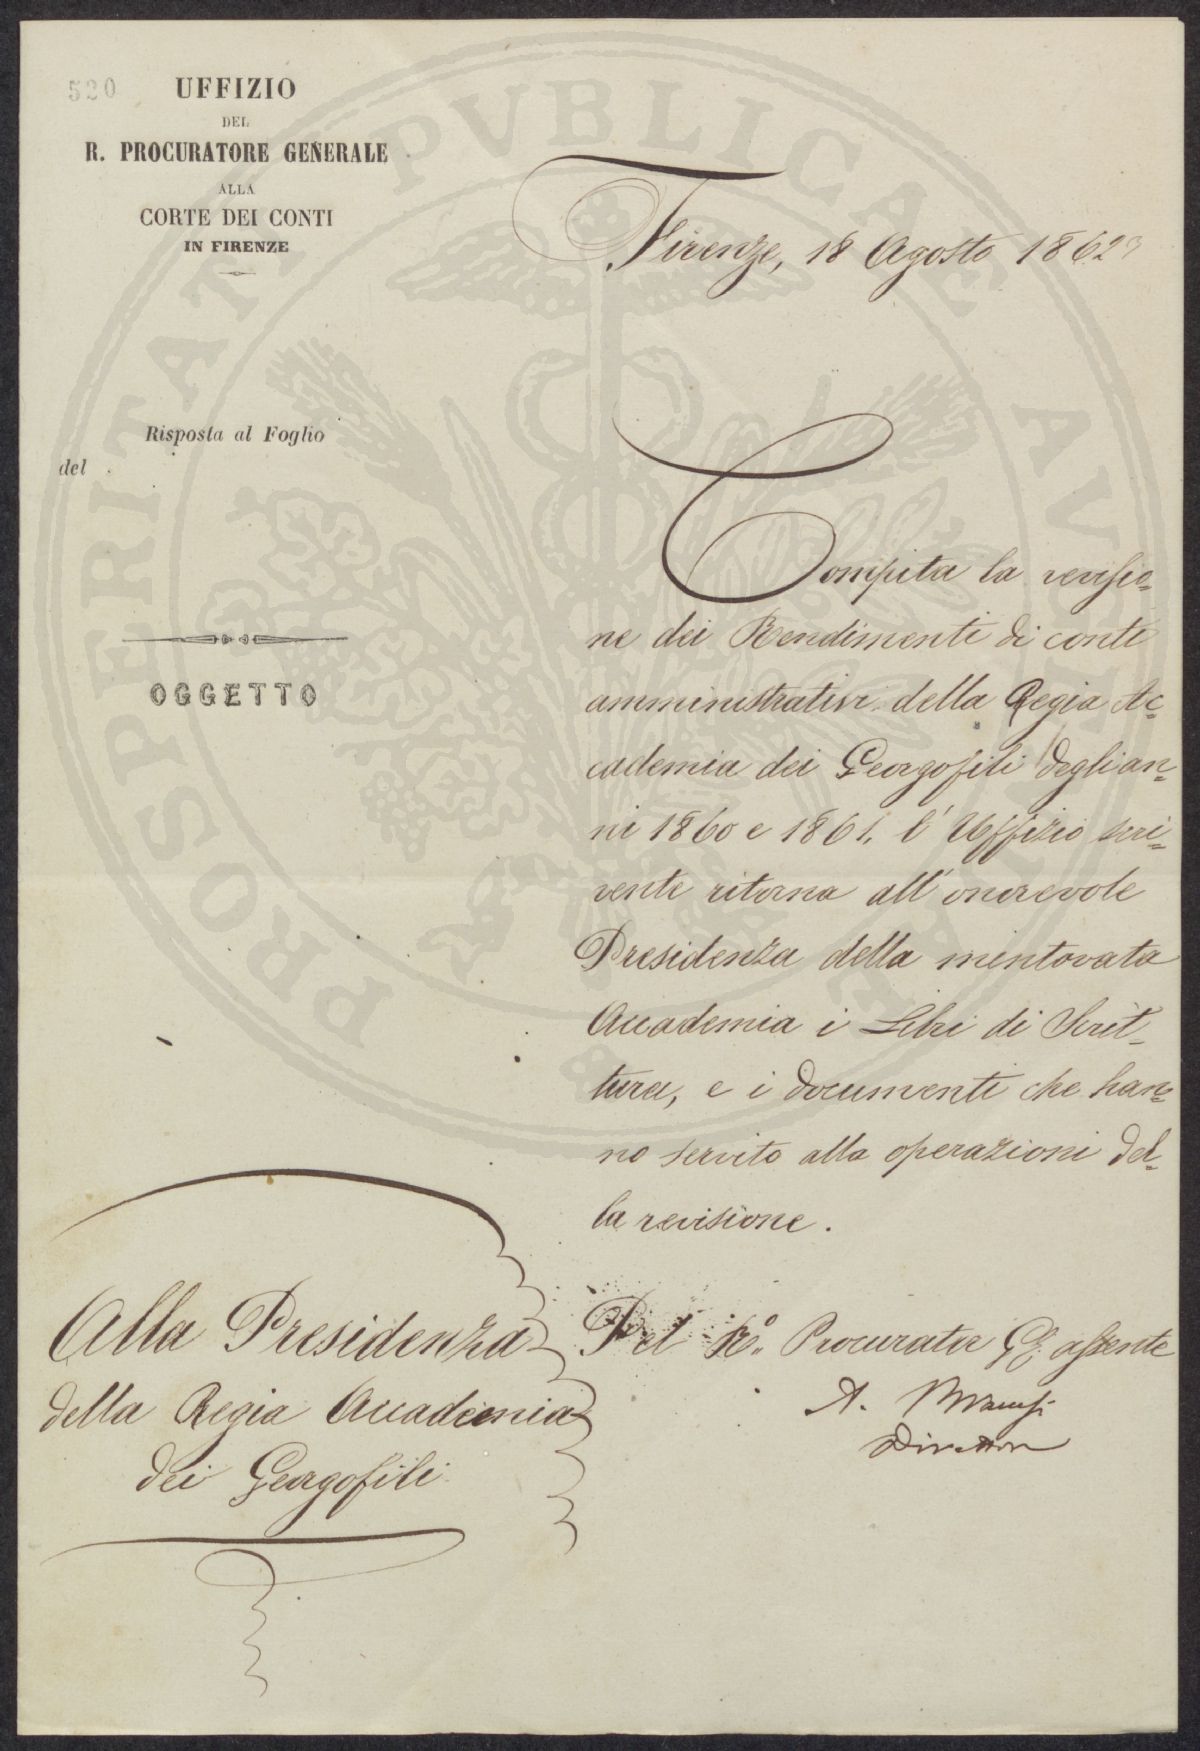 520
UFFIZIO
DEL
R. PROCURATORE GENERALE
ALLA
CORTE DEI CONTI
IN FIRENZE
Firenze, 18 Agosto 1862
Risposta al Foglio
del
OGGETTO
Compita la revisio=
ne dei Rendimenti di conti
amministrativi della Regia Ac=
cademia dei Georgofili degli an=
ni 1860 e 1861, l'Uffizio scri=
vente ritorna all'onorevole
Presidenza della mentovata
Accademia i Libri di Scrit=
tura, e i documenti che han=
no servito alla operazioni del=
la revisione.
Pel Rº. Procurator Gle assente
A.
Direttore
Alla Presidenza
della Regia Accademia
dei Georgofili
PROSPERITATI PUBLICAE AUGENDAE